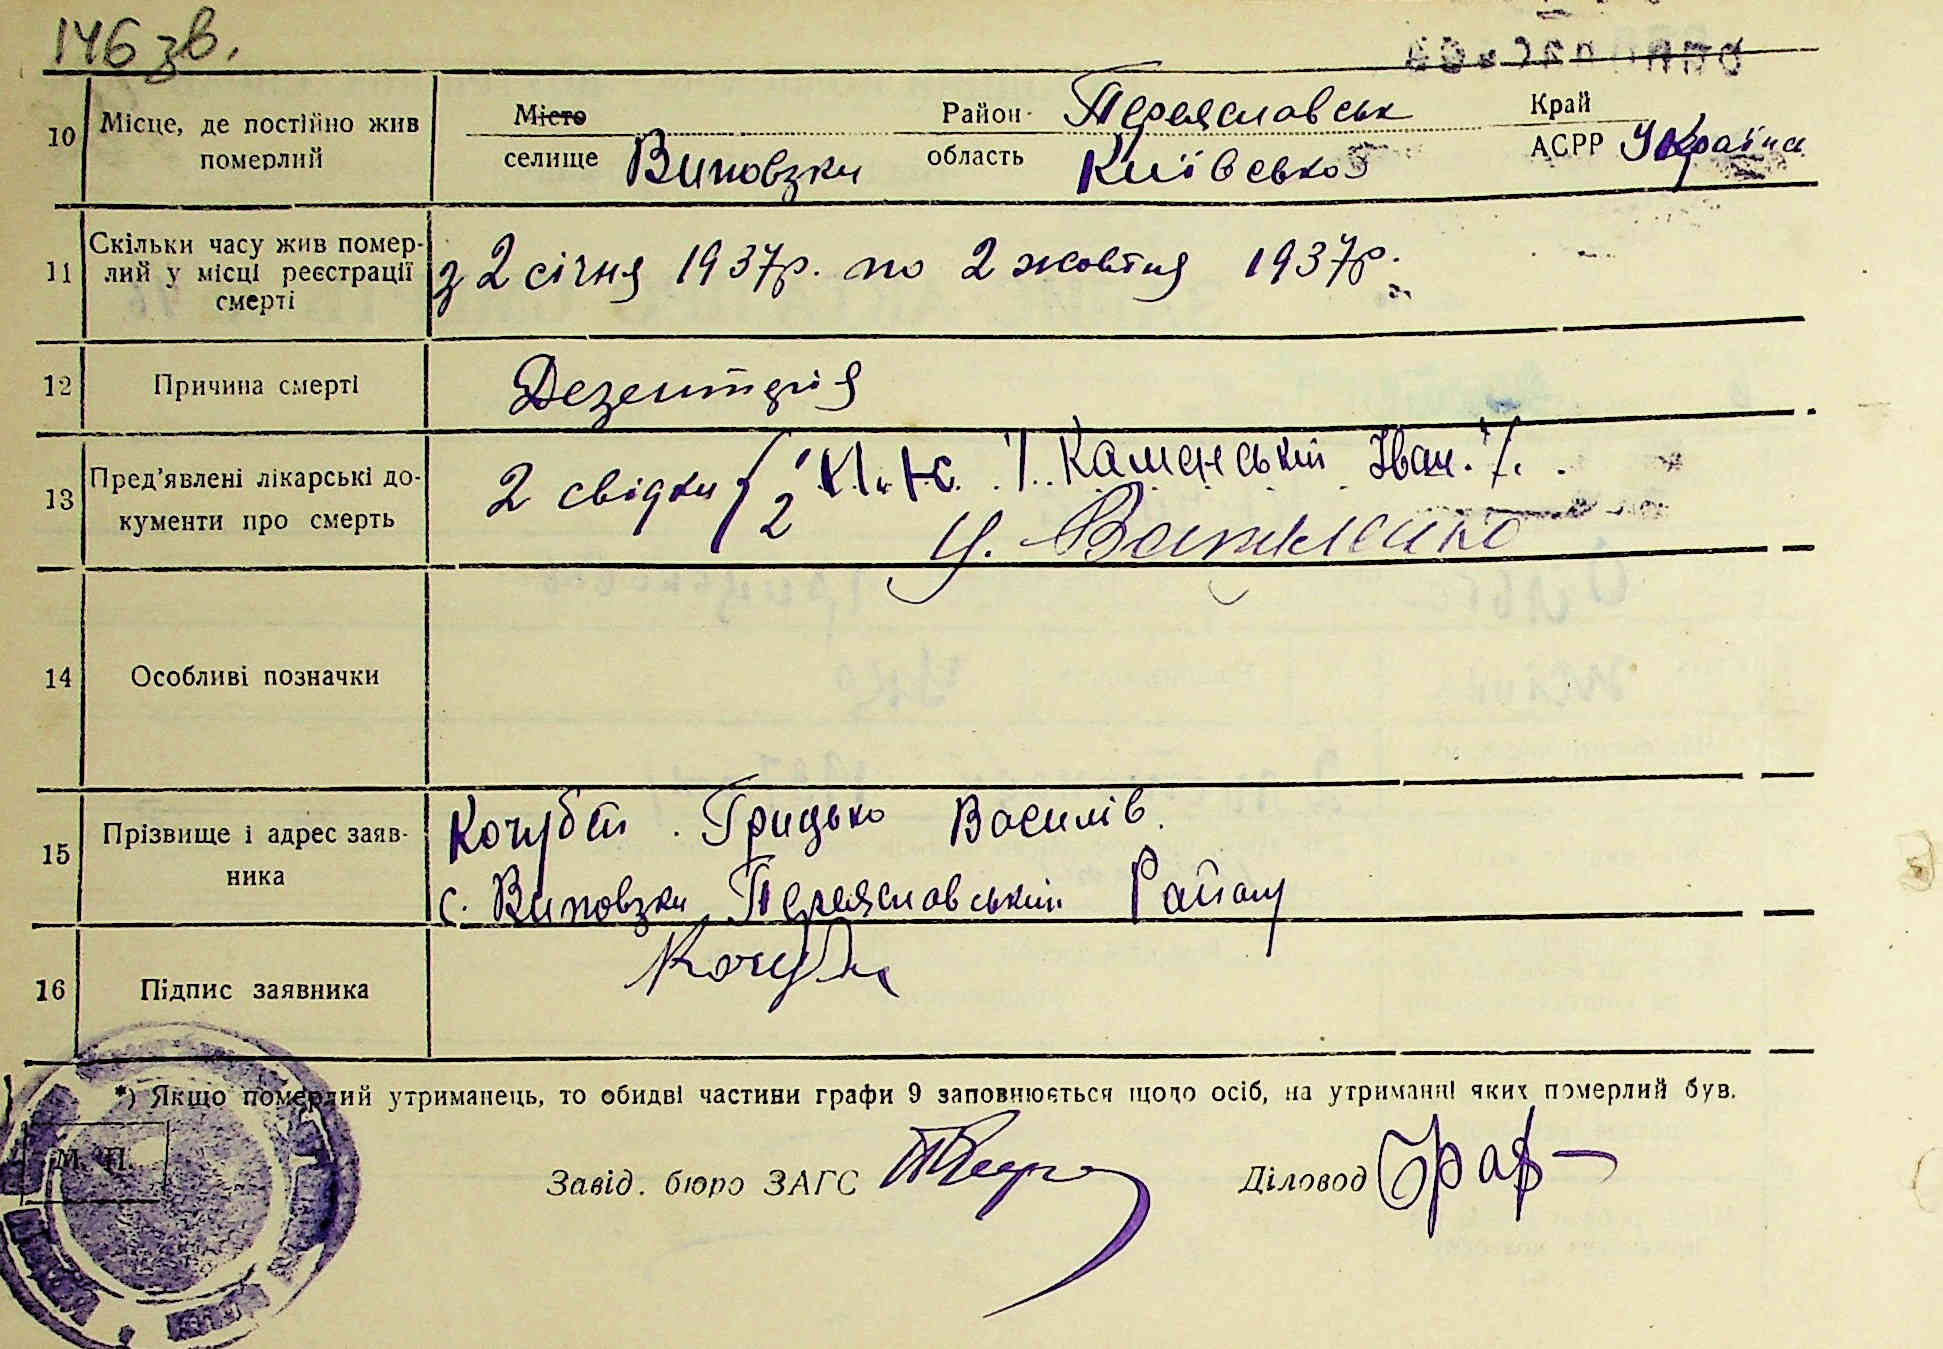 146 зв.
10 Місце, де постійно жив померлий
Місто Район Переяславськ Край
селище Виповзки область Київської АСРР Україна
11 Скільки часу жив помер-
лий у місці реєстрації
смерті
з 2 січня 1937р. по 2 жовтня 1937р.
12 Причина смерті Дезентерія
13 Пред'явлені лікарські до-
кументи про смерть
2 свідки Каменський Іван.
2
14 Особливі позначки
15 Прізвище і адрес заяв-
ника
Кочубей Грицько Василів.
с. Виповзки Переяславський Району
16 Підпис заявника Кочубе
*) Якщо померлий утриманець, то обидві частини графи 9 заповнюється щодо осіб, на утриманні яких померлий був.
М. П.
Завід. бюро ЗАГС Діловод